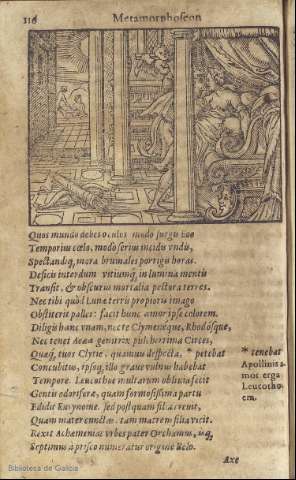 116 Metamorphoseon
Quos mundo debes oculos modo surgis Eoo
Temporius cœlo, modo serius incidis vndis,
Spectandiq́; mora brumales porrigis horas.
Deficis interdum vitiumq́; in lumina mentis
Transit, & obscurus mortalia pectora terres.
Nec tibi quòd Lunæ terris propioris imago
Obstiterit palles: facit hunc amor ipse colorem.
Diligis hanc vnam, nec te Clymeneque, Rhodósque,
Nec tenet Aeææ genitrix pulcherrima Circes,
Quæq́; tuos Clytie, quamuis despecta, * petebat
Concubitus, ipsoq́; illo graue vulnus habebat
Tempore. Leucothoë multarum obliuia fecit
Gentis odoriferæ, quam formosissima partu
Edidit Eurynome. sed postquam filia creuit,
Quàm mater cunctas, tam matrem filia vicit.
Rexit Achæmenias vrbes pater Orchamus, isq́;
Septimus à prisco numeratur origine Belo.
* tenebat
Apollinis a-
mor erga
Leucotho-
ëm.
Axe
Biblioteca de Galicia